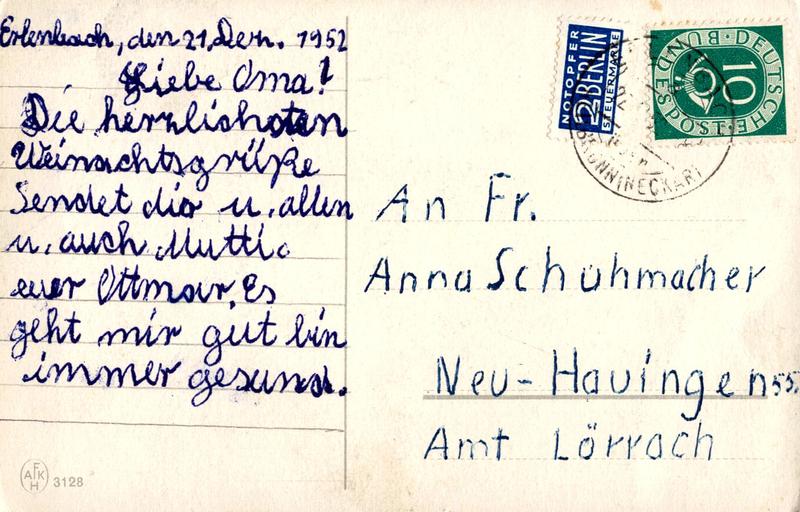 Erlenbach, den 21. Dez. 1952
Liebe Oma!
Die herzlichsten
Weinachtsgrüße
Sendet dir u. allen
u. auch Mutti.
euer Ottmar. Es
geht mir gut bin
immer gesund.
AFKH 3128
NOTOPFER
2 BERLIN
STEUERMARKE
DEUTSCHE BUNDESPOST
10
An Fr.
Anna Schuhmacher
Neu-Hauingen 55.
Amt Lörrach